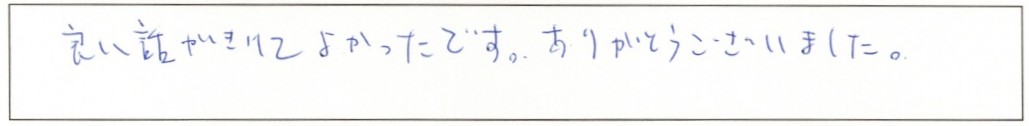 良い話がきけてよかったです。ありがとうございました。